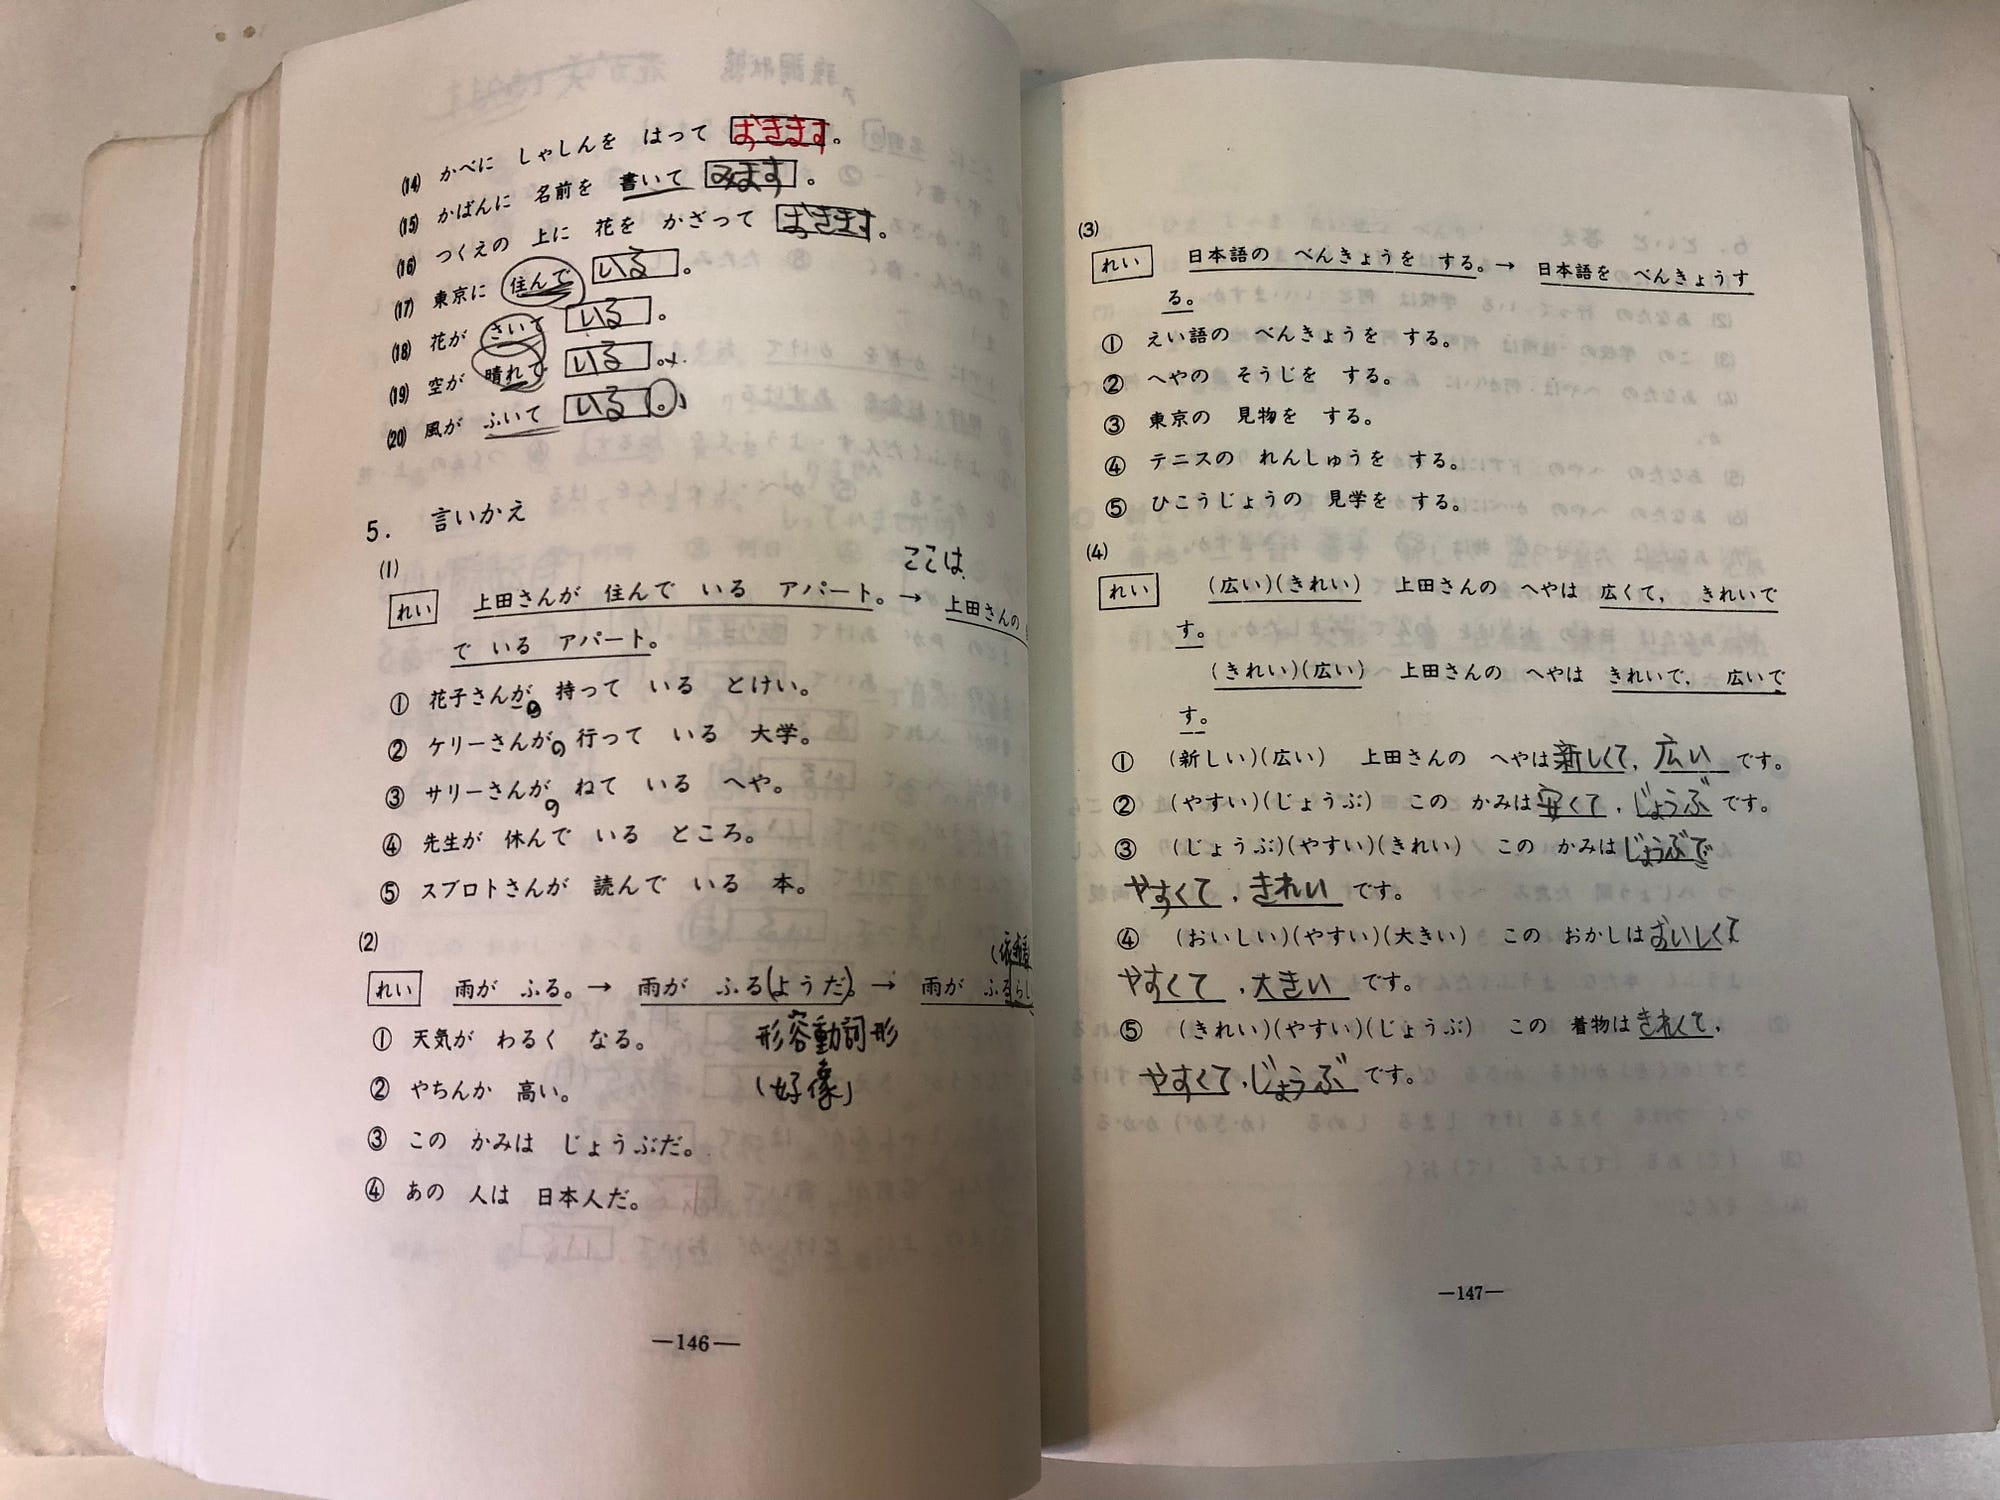 (14) かべに しゃしんを はって おきます。
(15) かばんに 名前を 書いて みます。
(16) つくえの 上に 花を かざって おきます。
(17) 東京に 住んで いる。
(18) 花が さいて いる。
(19) 空が 晴れて いる。
(20) 風が ふいて いる。
5. 言いかえ
(1) ここは
れい 上田さんが 住んで いる アパート。→ 上田さんの
で いる アパート。
① 花子さんが の 持って いる とけい。
② ケリーさんが の 行って いる 大学。
③ サリーさんが の ねて いる へや。
④ 先生が 休んで いる ところ。
⑤ スブロトさんが 読んで いる 本。
(2)
れい 雨が ふる。→ 雨が ふる(ようだ)。→ 雨が ふるらし
① 天気が わるく なる。 形容動詞形
② やちんか 高い。 (好像)
③ この かみは じょうぶだ。
④ あの 人は 日本人だ。
—146—
(3)
れい 日本語の べんきょうを する。→ 日本語を べんきょうす
る。
① えい語の べんきょうを する。
② へやの そうじを する。
③ 東京の 見物を する。
④ テニスの れんしゅうを する。
⑤ ひこうじょうの 見学を する。
(4)
れい (広い)(きれい) 上田さんの へやは 広くて, きれいで
す。
(きれい)(広い) 上田さんの へやは きれいで, 広いで
す。
① (新しい)(広い) 上田さんの へやは新しくて, 広い です。
② (やすい)(じょうぶ) この かみは安くて, じょうぶ です。
③ (じょうぶ)(やすい)(きれい) この かみはじょうぶで
やすくて, きれい です。
④ (おいしい)(やすい)(大きい) この おかしはおいしくて
やすくて, 大きい です。
⑤ (きれい)(やすい)(じょうぶ) この 着物はきれくて,
やすくて, じょうぶ です。
—147—